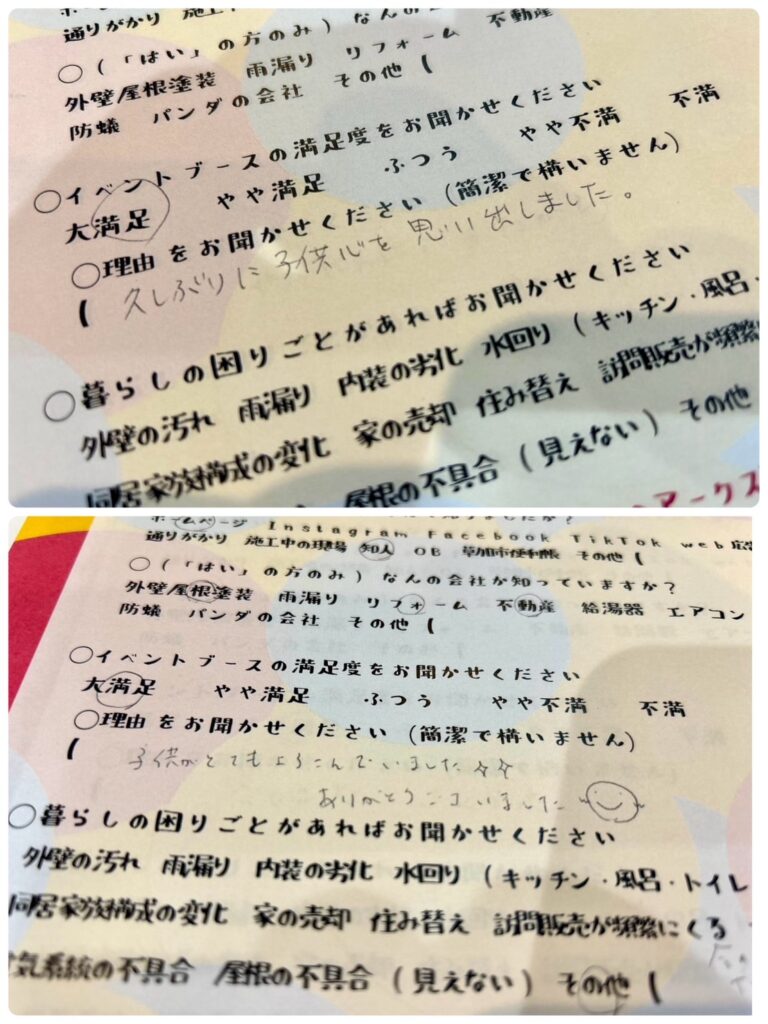 通りがかり 施工
○（「はい」の方のみ）なんの
外壁/屋根塗装 雨漏り リフォーム 不動産
防蟻 パンダの会社 その他（
○イベントブースの満足度をお聞かせください
大満足 やや満足 ふつう やや不満 不満
○理由をお聞かせください（簡潔で構いません）
（ 久しぶりに子供心を思い出しました。
○暮らしの困りごとがあればお聞かせください
外壁の汚れ 雨漏り 内装の劣化 水回り（キッチン・風呂・
同居家族構成の変化 家の売却 住み替え 訪問販売が頻繁
屋根の不具合（見えない）その他
アークス
ホームページ Instagram Facebook TikTok web広
通りがかり 施工中の現場 知人 OB 草加市便利帳 その他（
○（「はい」の方のみ）なんの会社か知っていますか？
外壁/屋根塗装 雨漏り リフォーム 不動産 給湯器 エアコン
防蟻 パンダの会社 その他（
○イベントブースの満足度をお聞かせください
大満足 やや満足 ふつう やや不満 不満
○理由をお聞かせください（簡潔で構いません）
（ 子供がとてもよろこんでいました☆☆
ありがとうございました
○暮らしの困りごとがあればお聞かせください
外壁の汚れ 雨漏り 内装の劣化 水回り（キッチン・風呂・トイレ
同居家族構成の変化 家の売却 住み替え 訪問販売が頻繁にくる
電気系統の不具合 屋根の不具合（見えない）その他（